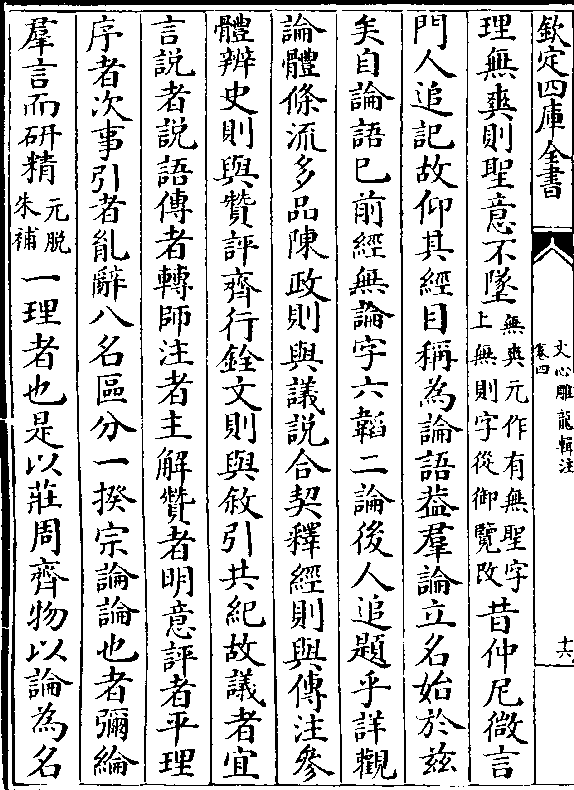 欽定四庫全書
文心雕龍輯注
卷四
十六
理無爽則聖意不墜無爽元作有無聖字
上無則字從御覽改昔仲尼微言
門人追記故仰其經目稱為論語葢羣論立名始於兹
矣自論語已前經無論字六韜二論後人追題乎詳觀
論體條流多品陳政則與議説合契釋經則與傳注參
體辨史則與贊評齊行銓文則與敘引共紀故議者宜
言説者説語傳者轉師注者主解贊者明意評者平理
序者次事引者胤辭八名區分一揆宗論論也者彌綸
羣言而研精元脱
朱補一理者也是以莊周齊物以論為名